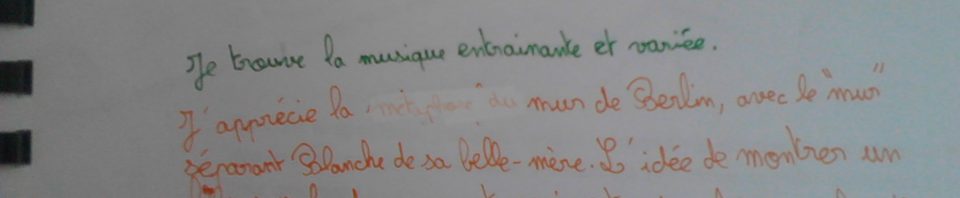 Je trouve la musique entrainante et variée.
J'apprécie la "métaphore" du mur de Berlin, avec le "mur"
séparant Blanche de sa belle-mère. L'idée de montrer un